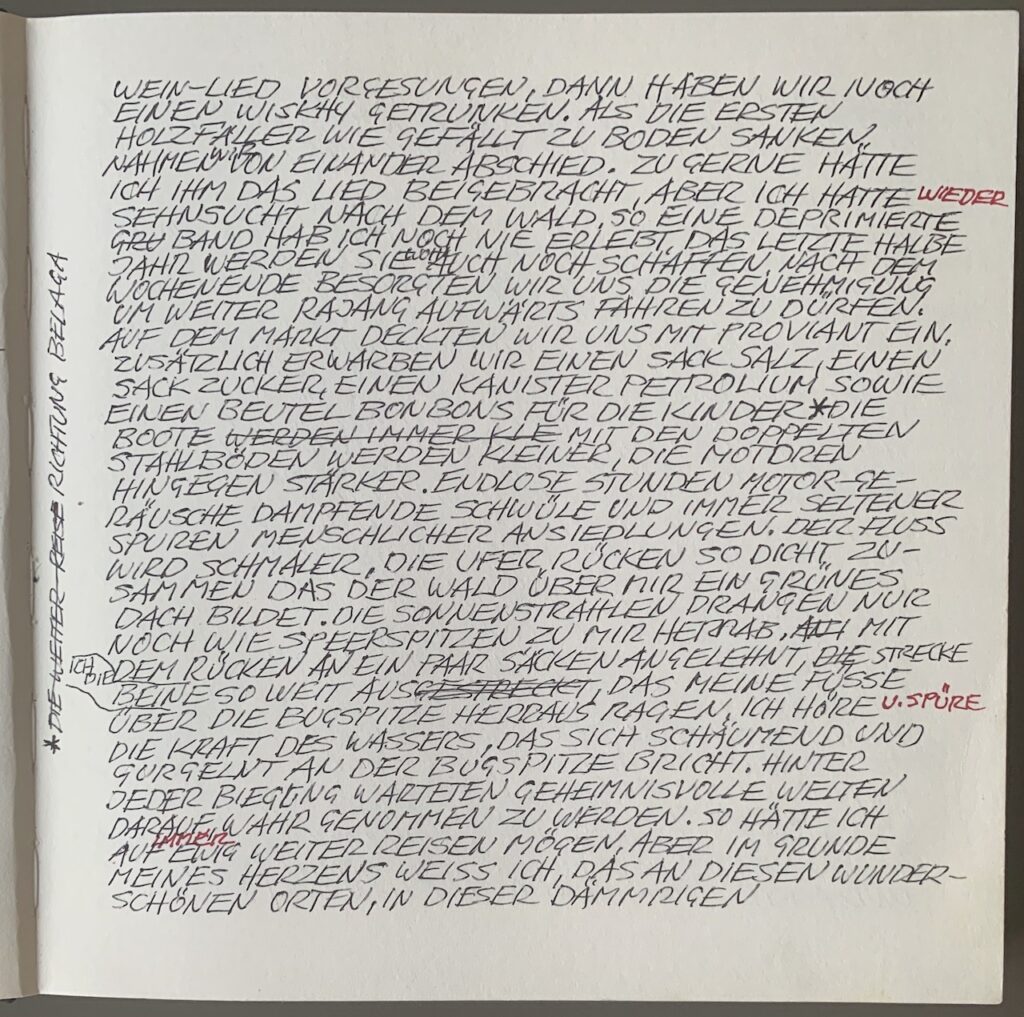 WEIN-LIED VORGESUNGEN, DANN HABEN WIR NOCH
EINEN WISKHY GETRUNKEN. ALS DIE ERSTEN
HOLZFÄLLER WIE GEFÄLLT ZU BODEN SANKEN,
NAHMEN WIR VON EINANDER ABSCHIED. ZU GERNE HÄTTE
ICH IHM DAS LIED BEIGEBRACHT, ABER ICH HATTE WIEDER
SEHNSUCHT NACH DEM WALD, SO EINE DEPRIMIERTE
GRU BAND HAB ICH NOCH NIE ERLEBT, DAS LETZTE HALBE
JAHR WERDEN SIE WOHL AUCH NOCH SCHAFFEN. NACH DEM
WOCHENENDE BESORGTEN WIR UNS DIE GENEHMIGUNG
UM WEITER RAJANG AUFWÄRTS FAHREN ZU DÜRFEN.
AUF DEM MARKT DECKTEN WIR UNS MIT PROVIANT EIN.
ZUSÄTZLICH ERWARBEN WIR EINEN SACK SALZ, EINEN
SACK ZUCKER, EINEN KANISTER PETROLIUM SOWIE
EINEN BEUTEL BONBONS FÜR DIE KINDER *DIE
BOOTE WERDEN IMMER KLE MIT DEN DOPPELTEN
STAHLBÖDEN WERDEN KLEINER, DIE MOTOREN
HINGEGEN STÄRKER. ENDLOSE STUNDEN MOTOR-GE-
RÄUSCHE DAMPFENDE SCHWÜLE UND IMMER SELTENER
SPUREN MENSCHLICHER ANSIEDLUNGEN. DER FLUSS
WIRD SCHMALER, DIE UFER RÜCKEN SO DICHT ZU-
SAMMEN DAS DER WALD ÜBER MIR EIN GRÜNES
DACH BILDET. DIE SONNENSTRAHLEN DRANGEN NUR
NOCH WIE SPEERSPITZEN ZU MIR HERRAB, MIT
DEM RÜCKEN AN EIN PAAR SÄCKEN ANGELEHNT, DIE STRECKE
ICH DIE BEINE SO WEIT AUSGESTRECKT, DAS MEINE FÜSSE
ÜBER DIE BUGSPITZE HERRAUS RAGEN, ICH HÖRE U. SPÜRE
DIE KRAFT DES WASSERS, DAS SICH SCHÄUMEND UND
GURGELNT AN DER BUGSPITZE BRICHT. HINTER
JEDER BIEGUNG WARTETEN GEHEIMNISVOLLE WELTEN
DARAUF WAHR GENOMMEN ZU WERDEN. SO HÄTTE ICH
AUF EWIG IMMER WEITER REISEN MÖGEN, ABER IM GRUNDE
MEINES HERZENS WEISS ICH, DAS AN DIESEN WUNDER-
SCHÖNEN ORTEN, IN DIESER DÄMMRIGEN
* DIE WEITER REISE RICHTUNG BELAGA